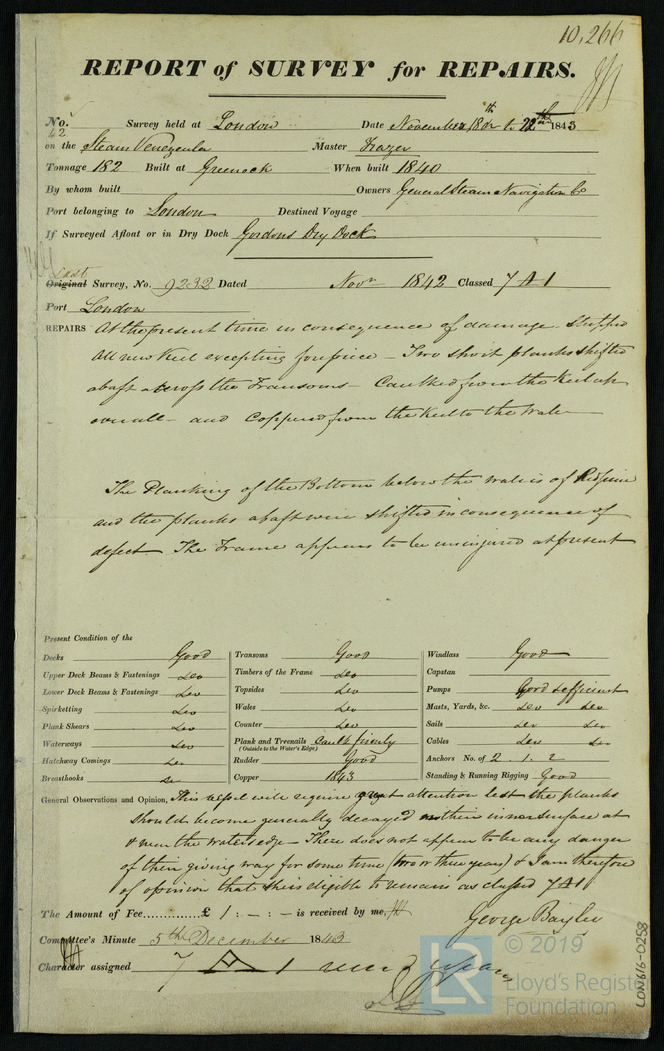 10,266
REPORT of SURVEY for REPAIRS.
No. 42 Survey held at London Date November 18th to 22nd 1843
on the Steam Venezuela Master Frazer
Tonnage 182 Built at Greenock When built 1840
By whom built Owners General Steam Navigation Co
Port belonging to London Destined Voyage
If Surveyed Afloat or in Dry Dock Gordons Dry Dock
Last
Original Survey, No. 9232 Dated Novr 1842 Classed 7 A 1
Port London
REPAIRS At the present time in consequence of damage. Stripped
All new Keel excepting forepiece – Two short planks shifted
abaft across the Transoms – Caulked from the Keel up
overall – and Coppered from the Keel to the Wale
The Planking of the Bottom below the wales is of Red pine
and the planks abaft were shifted in consequence of
defect – The Frame appears to be uninjured at present
Present Condition of the
Decks Good
Upper Deck Beams & Fastenings Do
Lower Deck Beams & Fastenings Do
Spirketting Do
Plank Shears Do
Waterways Do
Hatchway Comings Do
Breasthooks Do
Transoms Good
Timbers of the Frame Do
Topsides Do
Wales Do
Counter Do
Plank and Treenails
(Outside to the Water's Edge)
Rudder Good
Copper 1843
Windlass Good
Capstan
Pumps Good & efficient
Masts, Yards, &c. Do Do
Sails Do Do
Cables Do Do
Anchors No. of 2 . 1 . 2
Standing & Running Rigging Good
General Observations and Opinion, This vessel will require great attention lest the planks
should become generally decayed on their inner surface at
& near the water's edge – There does not appear to be any danger
of their giving way for some time (two or three years) & I am therefore
of opinion that she is eligible to remain as classed 7 A 1
The Amount of Fee £ 1 : – : – is received by me,
George Bayley
Committee's Minute 5th December 1843
Character assigned 7 A 1
LR © 2019
Lloyd's Register
Foundation
LON616-0258